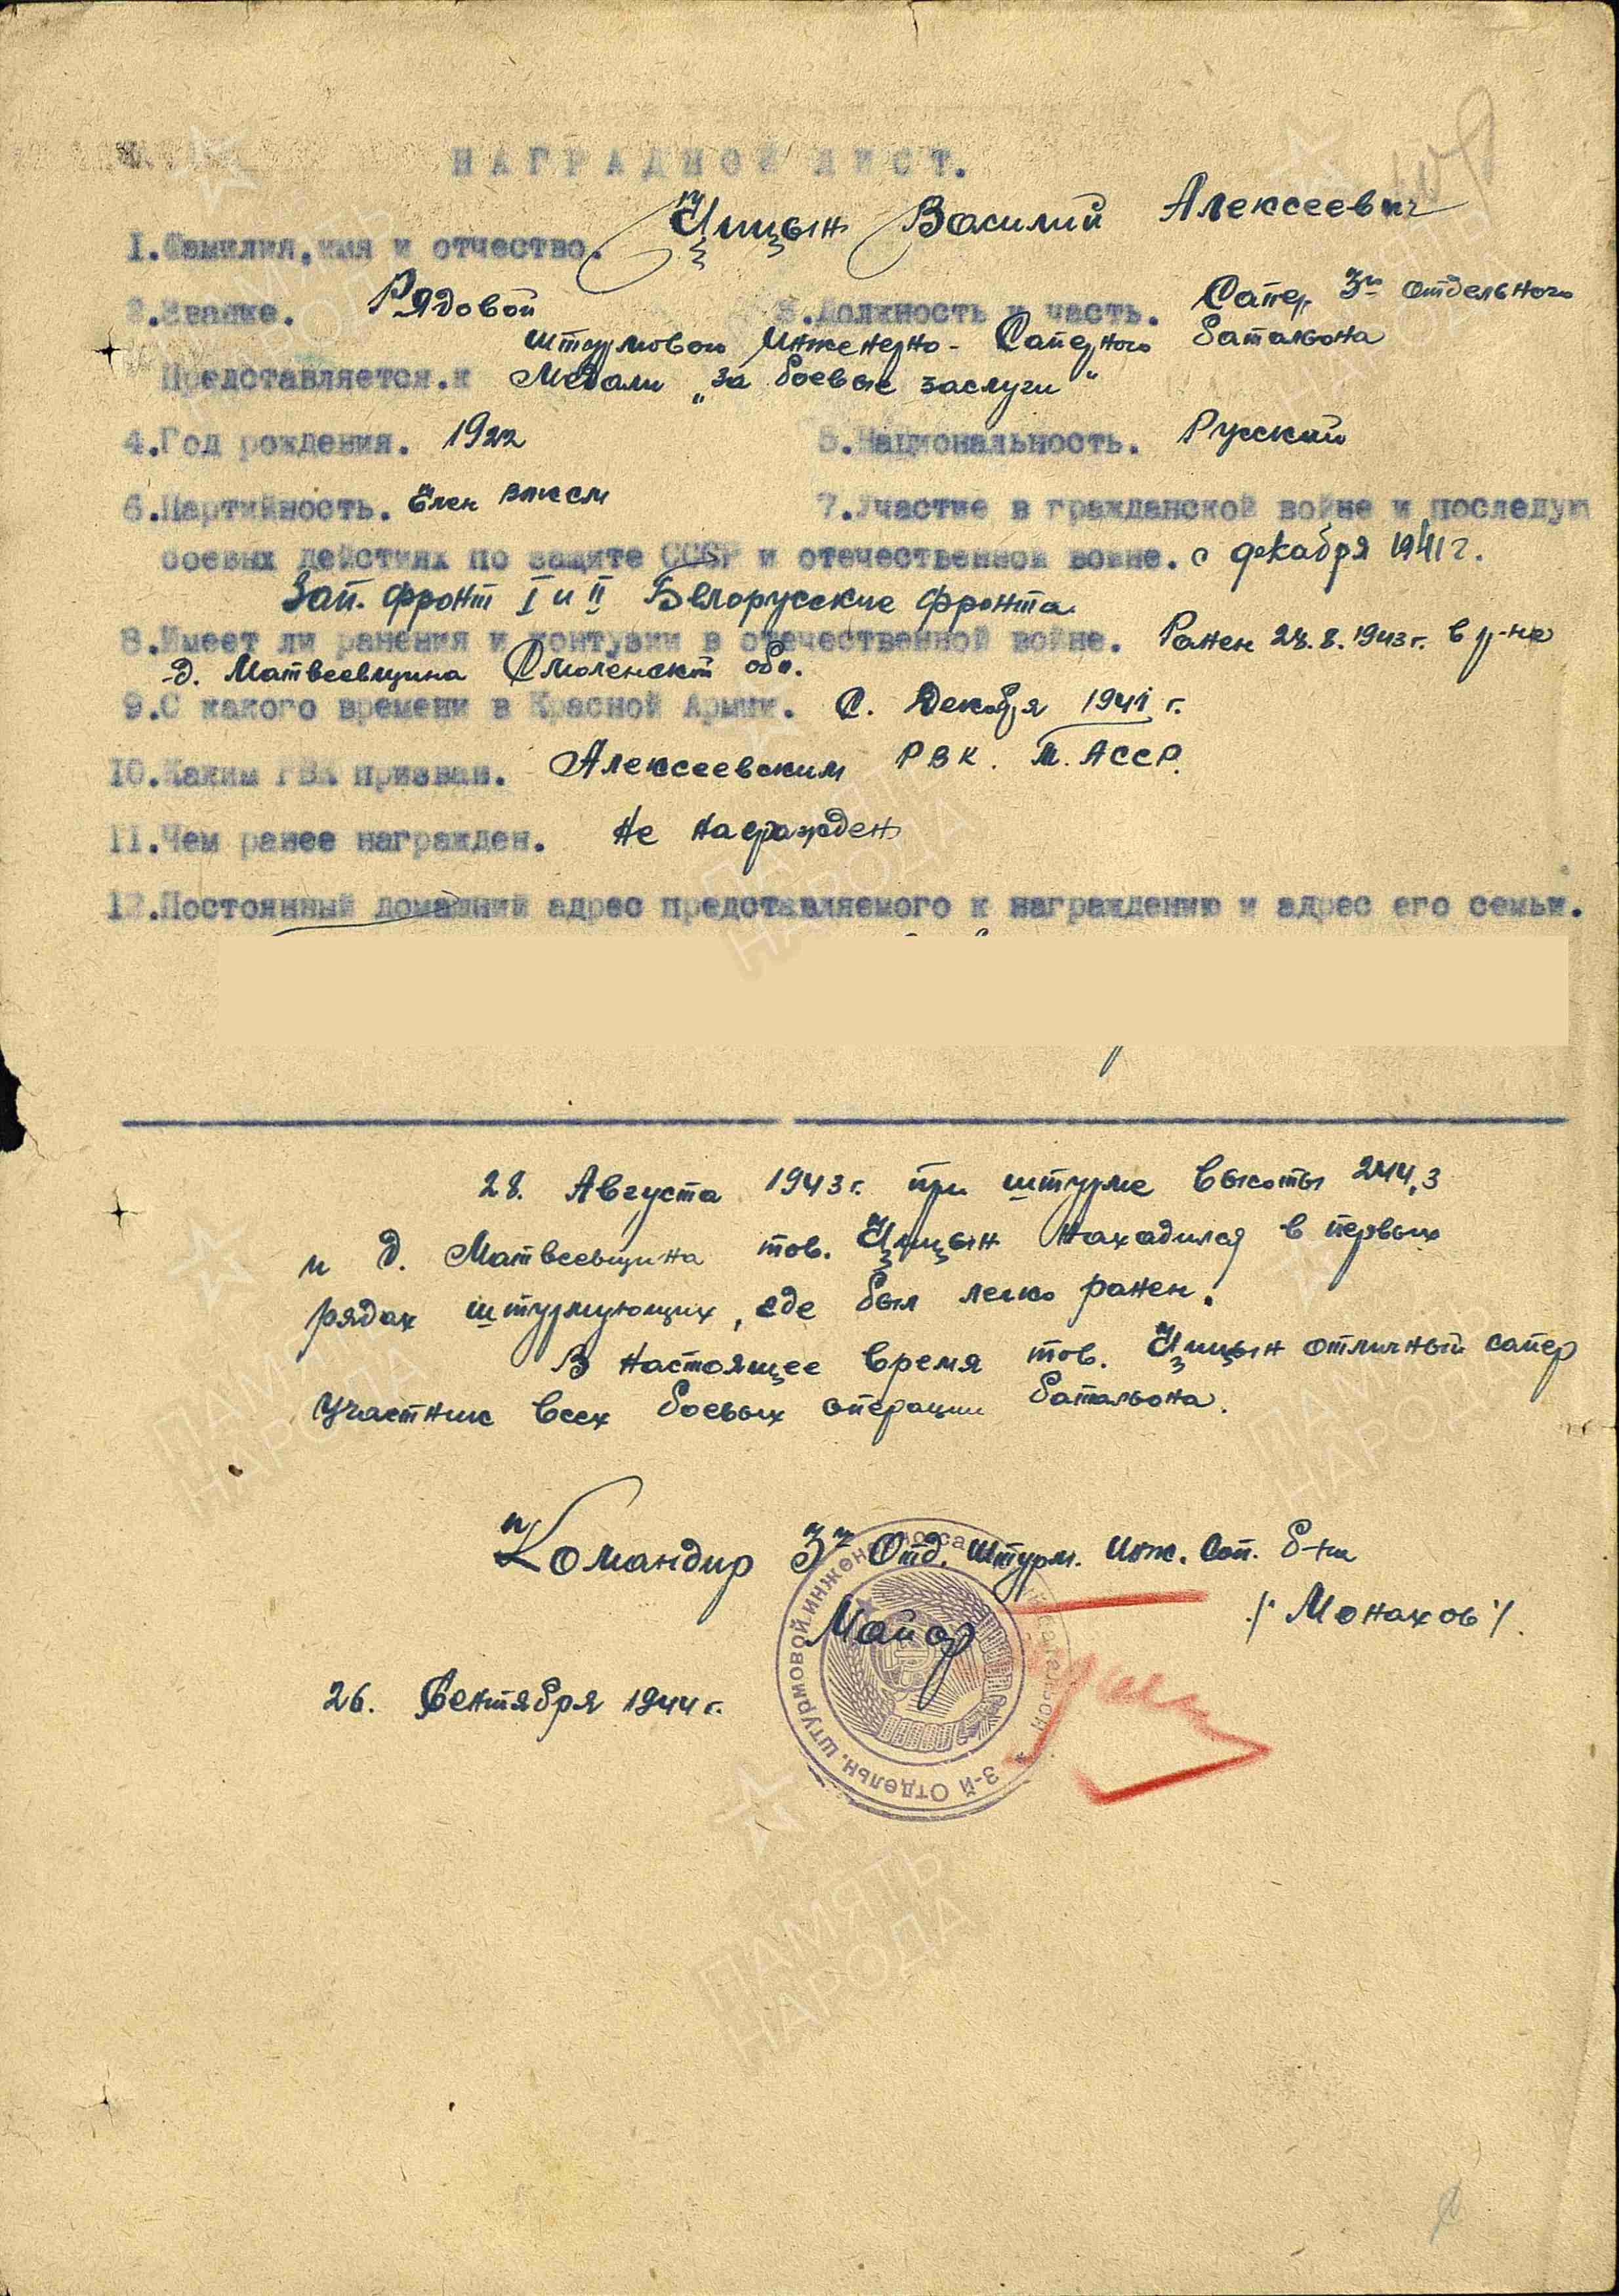 НАГРАДНОЙ ЛИСТ.
1.Фамилия,имя и отчество. Цицын Василий Алексеевич
2.Звание. Рядовой 3.Должность и часть. Сапер 3го отдельного
штурмового Инженерно-Саперного батальона
Представляется.к Медали „За боевые заслуги"
4.Год рождения. 1922 5.Национальность. Русский
6.Партийность. Член ВЛКСМ 7.Участие в гражданской войне и последую
боевых действиях по защите СССР и отечественной войне. с декабря 1941г.
Зап. фронт I и II Белорусские фронта.
8.Имеет ли ранения и контузии в отечественной войне. Ранен 28.8.1943г. в р-не
д. Матвеевщина Смоленской обл.
9.С какого времени в Красной Армии. С. Декабря 1941 г.
10.Каким РВК призван. Алексеевским РВК. М. АССР.
11.Чем ранее награжден. Не награжден
12.Постоянный домашний адрес представляемого к награждению и адрес его семьи.
28. Августа 1943г. при штурме высоты 244,3
и д. Матвеевщина тов. Цицын находился в первых
рядах штурмующих, где был легко ранен.
В настоящее время тов. Цицын отличный сапер
участник всех боевых операции батальона.
Командир 3го Отд. Штурм. Инж. Сап. б-на
Майор /Монахов/.
26. Сентября 1944г.
3-й Отдельн. штурмовой инженерно-са
ПАМЯТЬ НАРОДА